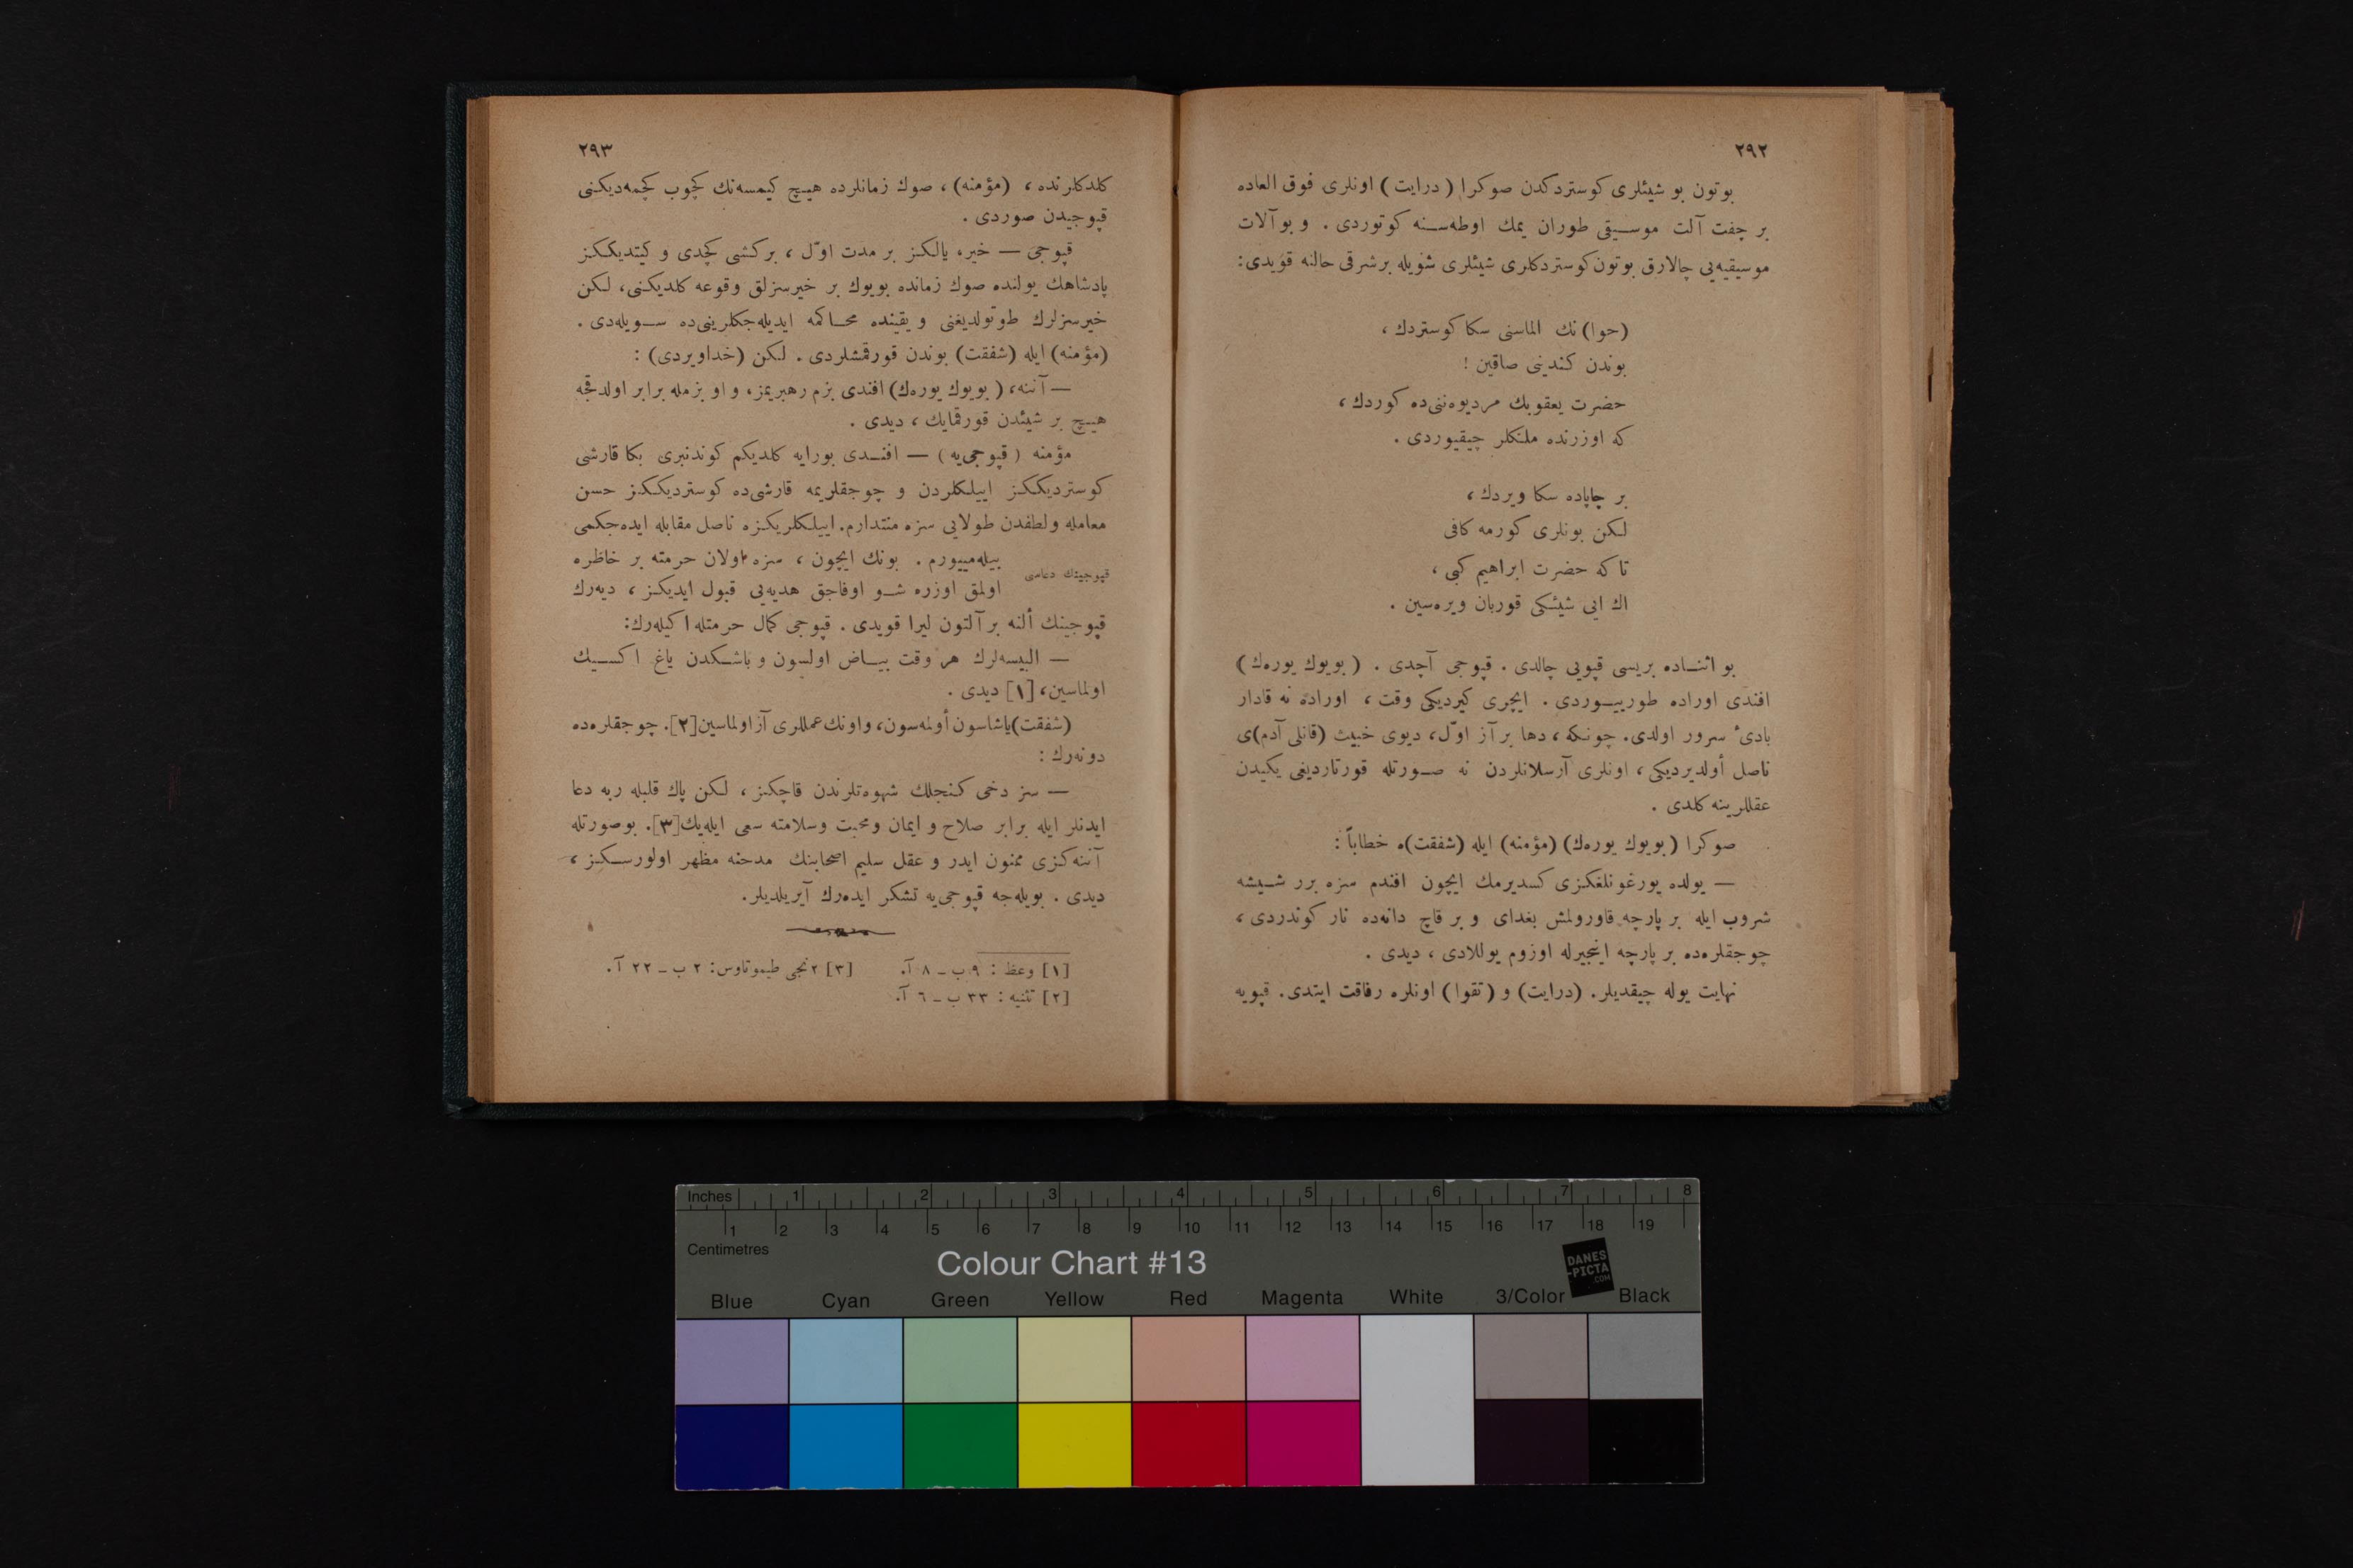 ٢٩٢
بوتون بو شیئلری كوستردكدن صوكرا (درایت) اونلری فوق العاده
بر چفت آلت موسیقی طوران یمك اوطه‌سنه كوتوردی . و بو آلات
موسیقیه‌یی چالارق بوتون كوستردكلری شیئلری شویله بر شرقی حالنه قویدی :
(حوا) نك الماسنی سكا كوستردك ،
بوندن كندینی صاقین !
حضرت یعقوبك مردیوه‌ننی‌ده كوردك ،
كه اوزرنده ملئكلر چیقیوردی .
بر چاپاده سكا ویردك ،
لكن بونلری كورمه كافی
تا كه حضرت ابراهیم كبی ،
اك ایی شیئكی قوربان ویره‌سین .
بو اثناده بریسی قپویی چالدی . قپوجی آچدی . (بویوك یوره‌ك)
افندی اوراده طورییوردی . ایچری كیردیكی وقت ، اوراده نه قادار
بادیٔ سرور اولدی. چونكه ، دها بر آز اوّل، دیوی خبیث (قانلی آدم)ی
ناصل أولدیردیكی ، اونلری آرسلانلردن نه صورتله قورتاردیغی یكیدن
عقللرینه كلدی .
صوكرا (بویوك یوره‌ك) (مؤمنه) ایله (شفقت)ه خطاباً :
— یولده یورغونلغكزی كسدیرمك ایچون افندم سزه برر شیشه
شروب ایله بر پارچه قاورولمش بغدای و بر قاچ دانه‌ده نار كوندردی ،
چوجقلره‌ده بر پارچه اینجیرله اوزوم یوللادی ، دیدی .
نهایت یوله چیقدیلر. (درایت) و (تقوا) اونلره رفاقت ایتدی. قپویه
٢٩٣
كلدكلرنده ، (مؤمنه) ، صوك زمانلرده هیچ كیمسه‌نك كچوب كچمه‌دیكنی
قپوجیدن صوردی .
قپوجی — خیر، یالكز بر مدت اوّل ، بر كشی كچدی و كیتدیككز
پادشاهك یولنده صوك زمانده بویوك بر خیرسزلق وقوعه كلدیكنی، لكن
خیرسزلرك طوتولدیغنی و یقینده محاكمه ایدیله‌جكلرینی‌ده سویله‌دی .
(مؤمنه) ایله (شفقت) بوندن قورقمشلردی . لكن (خداویردی) :
— آننه، (بویوك یوره‌ك) افندی بزم رهبریمز، و او بزمله برابر اولدقجه
هیچ بر شیئدن قورقمایك ، دیدی .
مؤمنه (قپوجی‌یه) — افندی بورایه كلدیكم كوندنبری بكا قارشی
كوستردیككز اییلكلردن و چوجقلریمه قارشی‌ده كوستردیككز حسن
معامله ولطفدن طولایی سزه منتدارم. اییلكلریكزه ناصل مقابله ایده‌جكمی
بیله‌مییورم . بونك ایچون ، سزه اولان حرمته بر خاطره
قپوجینك دعاسی
اولمق اوزره شو اوفاجق هدیه‌یی قبول ایدیكز ، دیه‌رك
قپوجینك ألنه بر آلتون لیرا قویدی . قپوجی كمال حرمتله اكیله‌رك:
— البیسه‌لرك هر وقت بیاض اولسون و باشكدن یاغ اكسیك
اولماسین، [١] دیدی .
(شفقت) یاشاسون أولمه‌سون، واونك عمللری آز اولماسین[٢]. چوجقلره‌ده
دونه‌رك :
— سز دخی كنجلك شهوه‌تلرندن قاچكز ، لكن پاك قلبله ربه دعا
ایدنلر ایله برابر صلاح و ایمان ومحبت وسلامته سعی ایله‌یك[٣]. بوصورتله
آننه‌كزی ممنون ایدر و عقل سلیم اصحابنك مدحنه مظهر اولورسكز ،
دیدی . بویله‌جه قپوجی‌یه تشكر ایده‌رك آیریلدیلر.
[١] وعظ : ٩ ب ـ ٨ آ. [٣] ٢ نجی طیموتاوس: ٢ ب ـ ٢٢ آ.
[٢] تثنیه : ٣٣ ب ـ ٦ آ.
Inches 1 2 3 4 5 6 7 8
1 2 3 4 5 6 7 8 9 10 11 12 13 14 15 16 17 18 19
Centimetres
Colour Chart #13
DANES
-PICTA
.COM
Blue Cyan Green Yellow Red Magenta White 3/Color Black